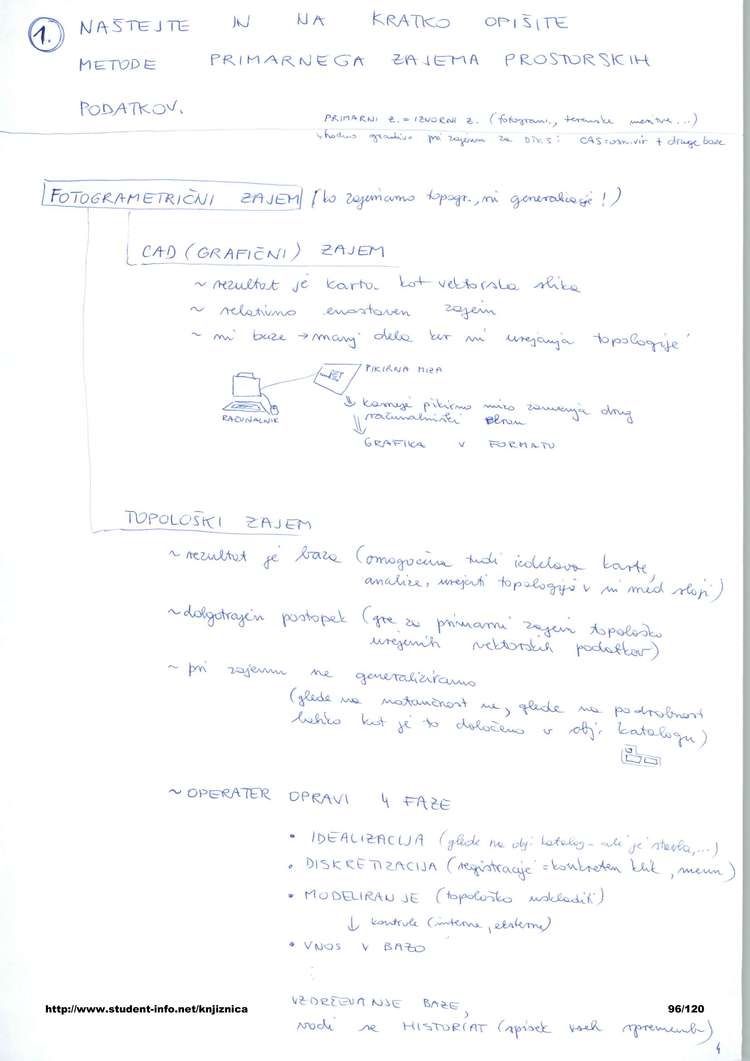 1. NAŠTEJTE IN NA KRATKO OPIŠITE
METODE PRIMARNEGA ZAJEMA PROSTORSKIH
PODATKOV.
PRIMARNI Z. = IZVORNI Z. (fotogram., terenske meritve...)
gradivo pri zajemu za DTK5: CAS + druge baze
FOTOGRAMETRIČNI ZAJEM (ko zajemamo topogr., ni generalizacije!)
CAD (GRAFIČNI) ZAJEM
~ rezultat je karta kot vektorska slika
~ relativno enostaven zajem
~ ni baze → manj dela ker ni urejanja topologije
PIKIRNA MIZA
RAČUNALNIK
↓ kasneje pikirno mizo zamenja drug
računalniški ekran
GRAFIKA V FORMATU
TOPOLOŠKI ZAJEM
~ rezultat je baza (omogočena tudi izdelava karte,
analize, urejati topologijo v in med sloji)
~ dolgotrajen postopek (gre za primarni zajem topološko
urejenih vektorskih podatkov)
~ pri zajemu ne generaliziramo
(glede na natančnost ne, glede na podrobnost
lahko kot je to določeno v obj. katalogu)
~ OPERATER OPRAVI 4 FAZE
• IDEALIZACIJA (glede na obj. katalog - ali je stavba,...)
• DISKRETIZACIJA (registracija = konkreten klik, menu)
• MODELIRANJE (topološko uskladiti)
↓ kontrole (interne, eksterne)
• VNOS V BAZO
VZDRŽEVANJE BAZE,
vodi se HISTORIAT (spisek vseh sprememb)
http://www.student-info.net/knjiznica 96/120
4